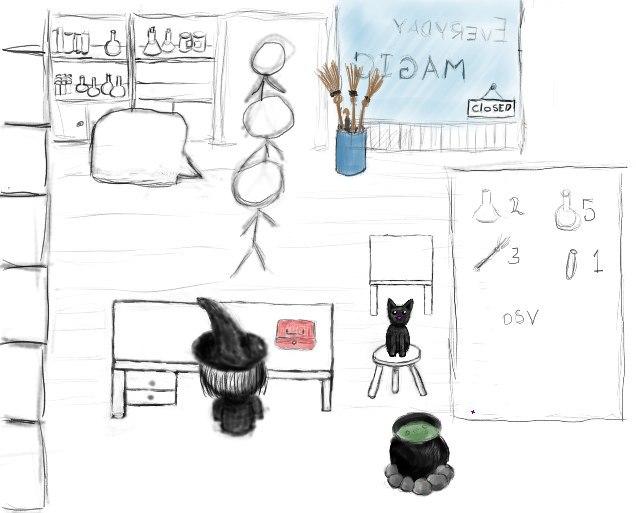 EVERYDAY
MAGIC
CLOSED
2 5
3 1
OSV